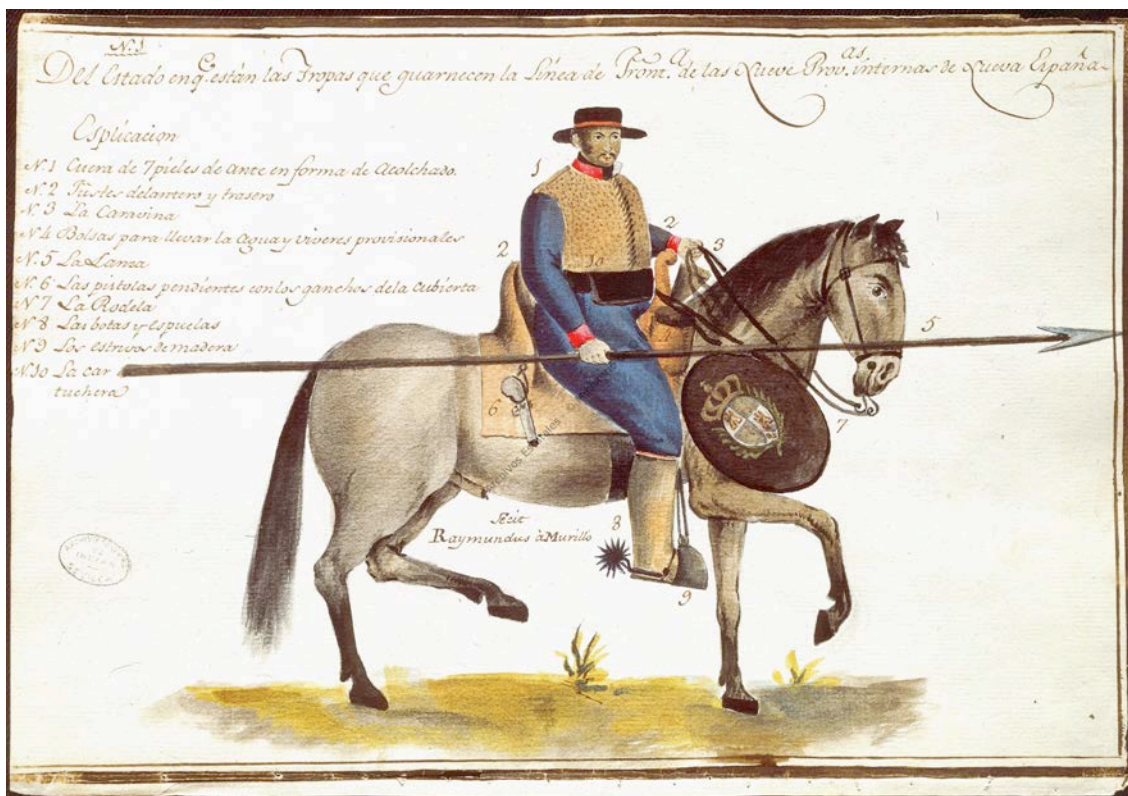 N. 1
Del Estado en q.e están las Tropas que guarnecen la Línea de Front.a de las Nueve Prov.as internas de Nueva España.
Esplicacion
N. 1 Cuera de 7 pieles de ante en forma de Acolchado.
N. 2 Fustes delantero y trasero
N. 3 La Caravina
N. 4 Bolsas para llevar la agua y viveres provisionales
N. 5 La Lanza
N. 6 Las pistolas pendientes con los ganchos de la cubierta
N. 7 La Rodela
N. 8 Las botas y espuelas
N. 9 Los estrivos de madera
N. 10 La car
tuchera
1
2
2
3
10
5
6
7
8
9
Fecit
Raymundus à Murillo